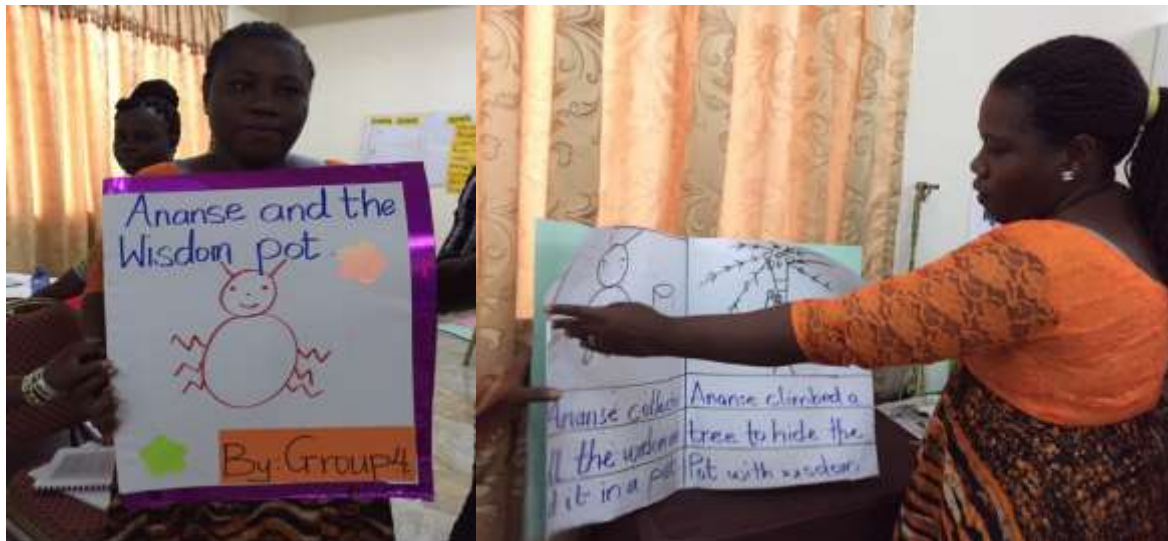 Ananse and the
Wisdom pot.
By: Group 4
Ananse collect
the
it in a
Ananse climbed a
tree to hide the
Pot with wisdom